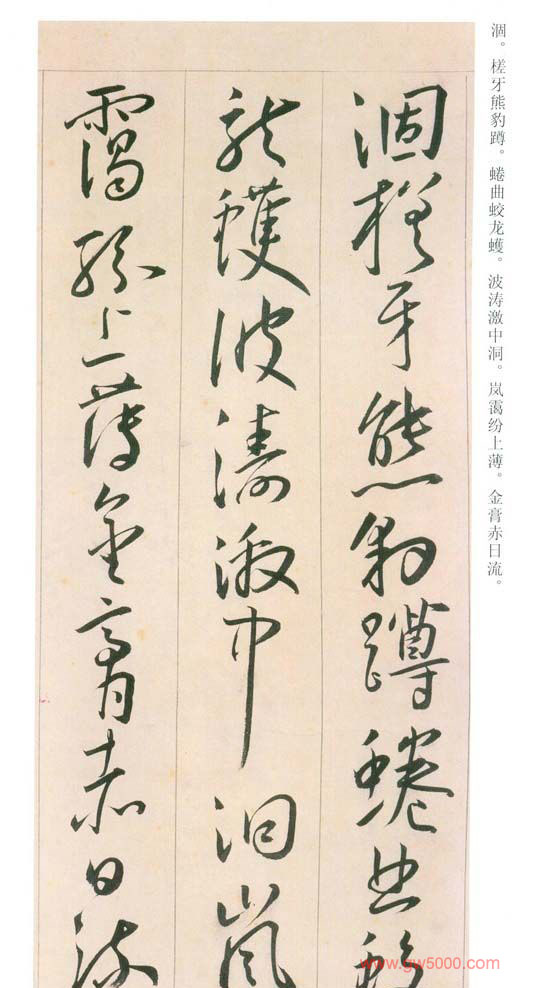 涸。槎牙熊豹蹲。蜷曲蛟龙蠖。波涛激中洞。岚霭纷上薄。金膏赤日流。
涸槎牙熊豹蹲蜷曲蛟
龙蠖波涛激中洞岚
靄紛上薄金膏赤日流
www.gw5000.com